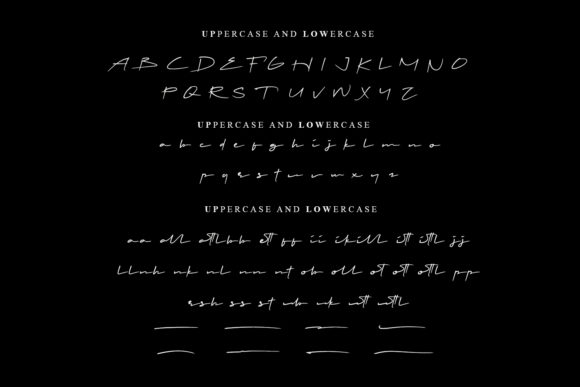 UPPERCASE AND LOWERCASE
A B C D E F G H I J K L M N O
P Q R S T U V W X Y Z
UPPERCASE AND LOWERCASE
a b c d e f g h i j k l m n o
p q r s t u v w x y z
UPPERCASE AND LOWERCASE
aa all attl bb ett ff ii ikill itt ittl jj
ll nh nk nl nn nt ob oll ot ott ottl pp
rsh ss st ub uk utt uttl